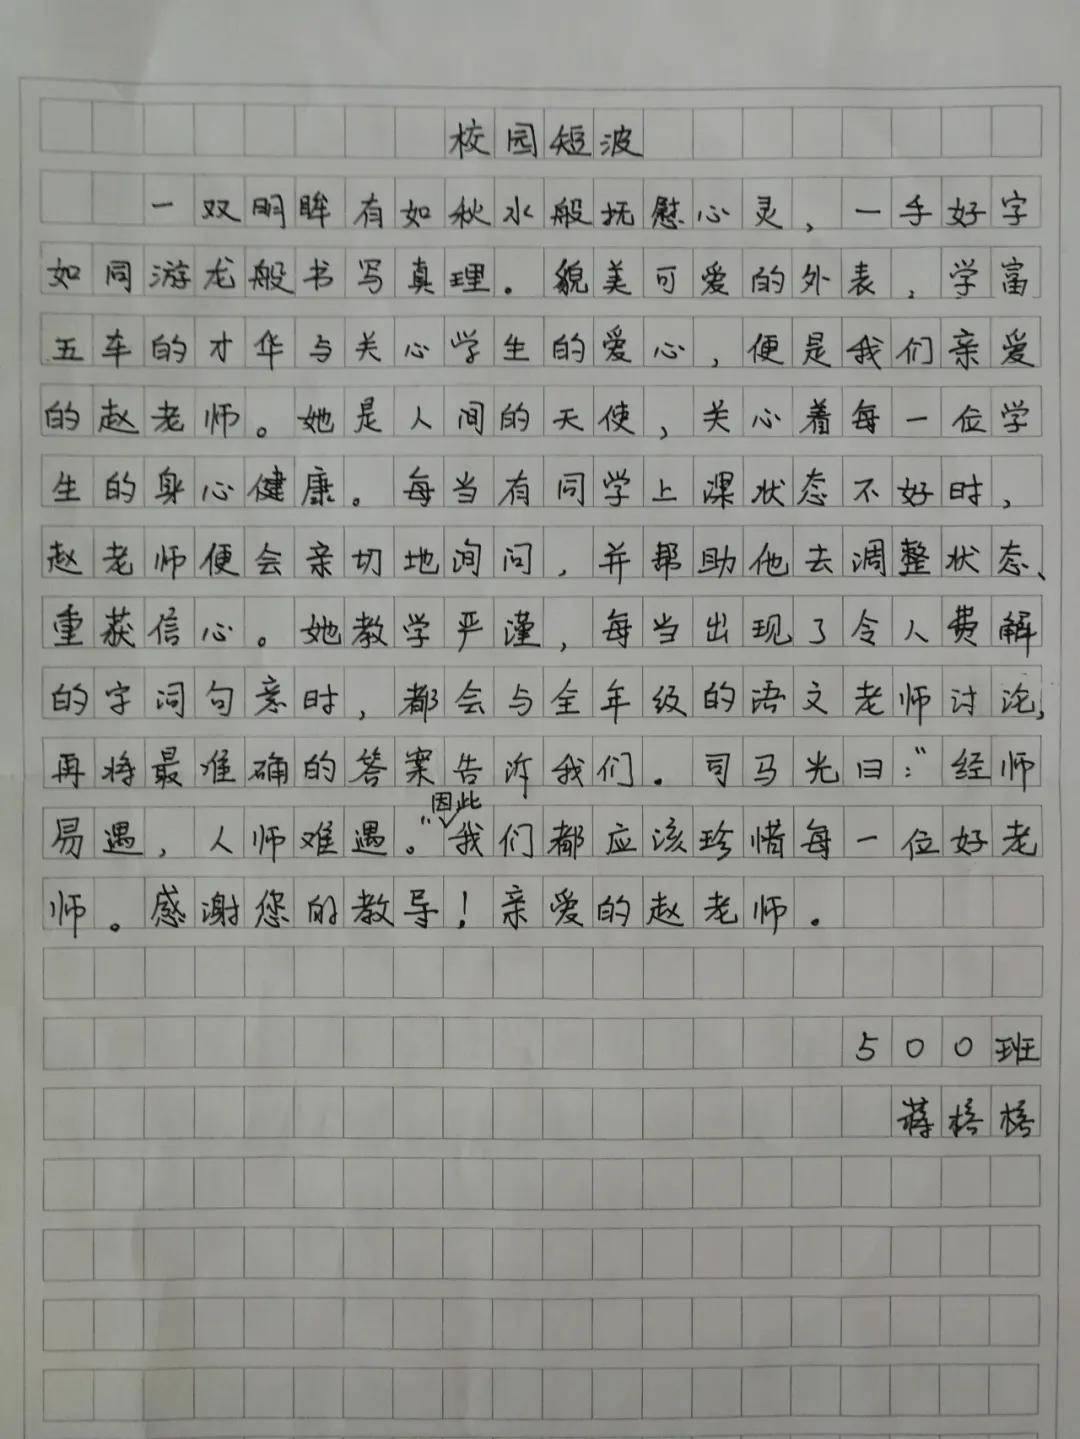 校园短波
一双明眸有如秋水般抚慰心灵，一手好字
如同游龙般书写真理。貌美可爱的外表，学富
五车的才华与关心学生的爱心，便是我们亲爱
的赵老师。她是人间的天使，关心着每一位学
生的身心健康。每当有同学上课状态不好时，
赵老师便会亲切地询问，并帮助他去调整状态、
重获信心。她教学严谨，每当出现了令人费解
的字词句意时，都会与全年级的语文老师讨论，
再将最准确的答案告诉我们。司马光曰：“经师
易遇，人师难遇。”因此我们都应该珍惜每一位好老
师。感谢您的教导！亲爱的赵老师。
500班
蒋